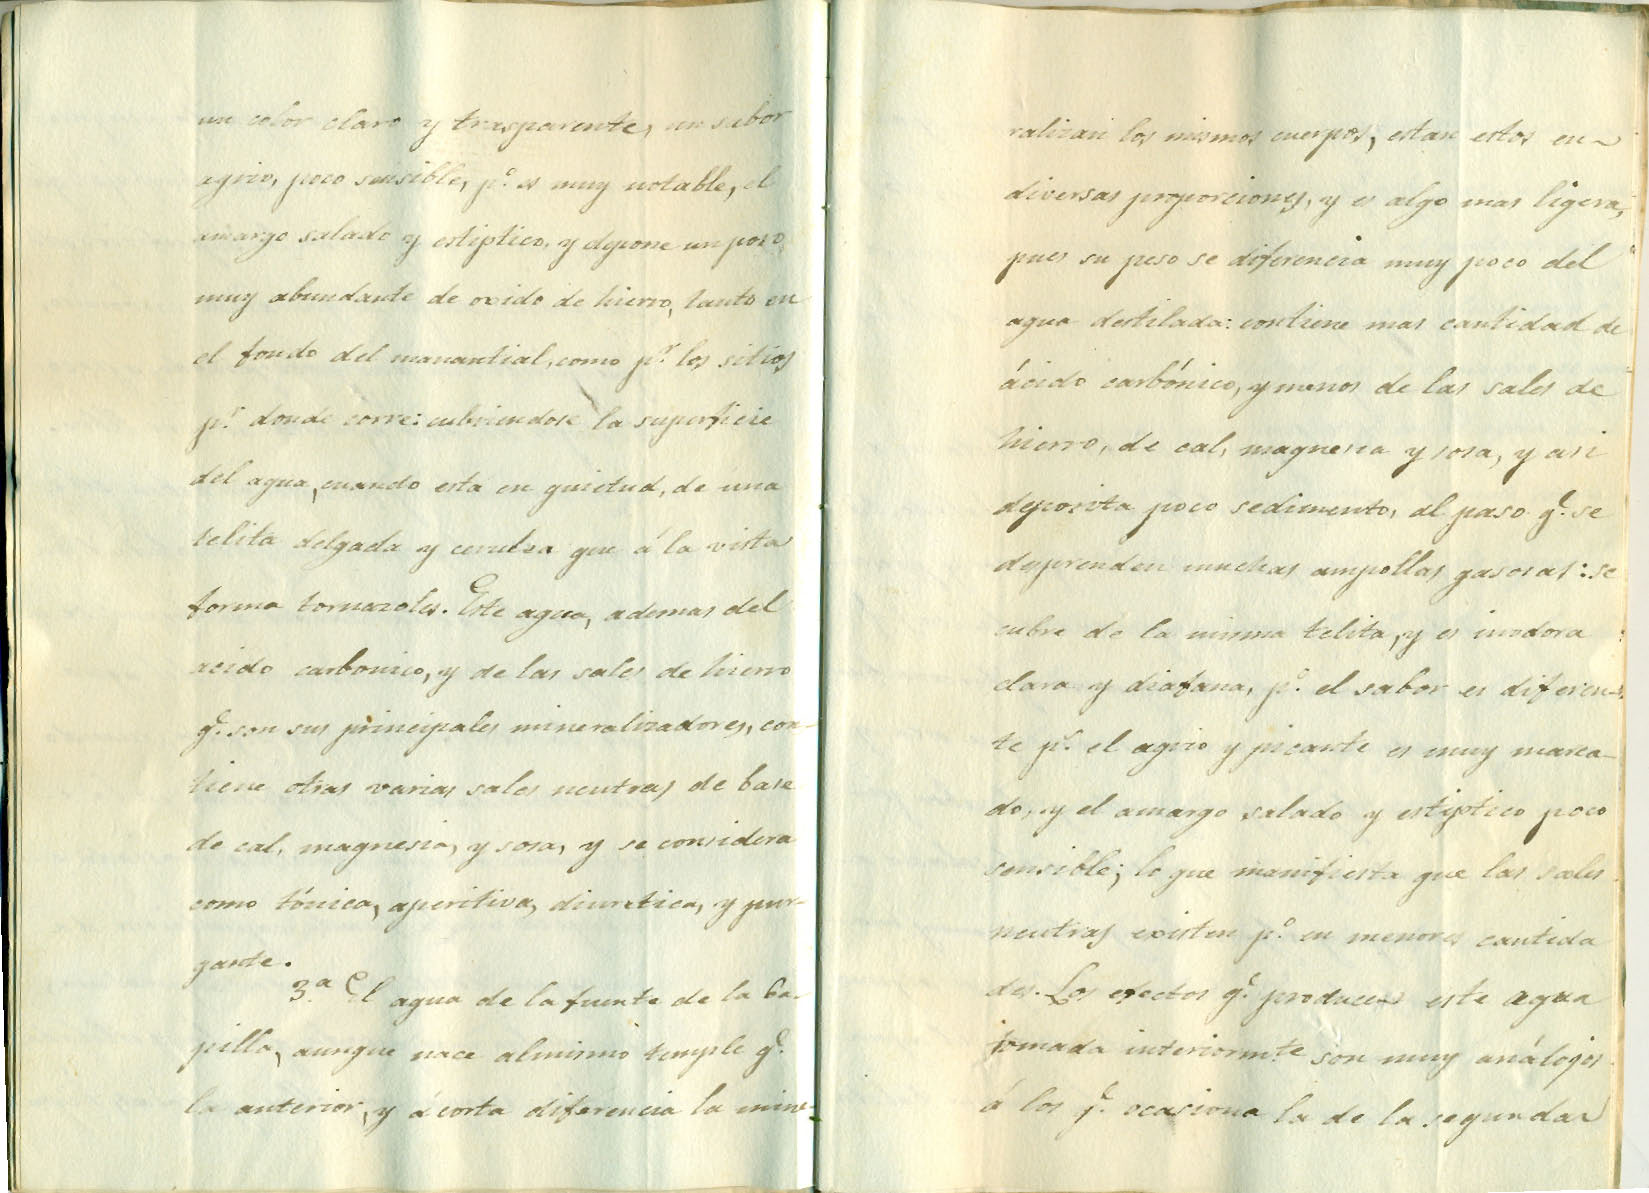 un color claro y trasparente, un sabor
agrio, poco sensible, p.º es muy notable, el
amargo salado y estiptico, y depone un poso
muy abundante de oxido de hierro, tanto en
el fondo del manantial, como p.r los sitios
p.r donde corre: cubriendose la superficie
del agua, cuando esta en quietud, de una
telita delgada y cerulea que á la vista
forma tornazoles. Este agua, ademas del
acido carbonico, y de las sales de hierro
q.e son sus principales mineralizadores, con-
tiene otras varias sales neutras de base
de cal, magnesia, y sosa, y se considera
como tónica, aperitiva, diuretica, y pur-
gante.
3.ª El agua de la fuente de la Ca-
pilla, aunque nace al mismo temple q.e
la anterior, y á corta diferencia la mine-
ralizan los mismos cuerpos, estan estos en
diversas proporciones, y es algo mas ligera,
pues su peso se diferencia muy poco del
agua destilada: contiene mas cantidad de
ácido carbónico, y menos de las sales de
hierro, de cal, magnesia y sosa, y asi
deposita poco sedimento, al paso q.e se
desprenden muchas ampollas gasosas: se
cubre de la misma telita, y es inodora
clara y diafana, p.º el sabor es diferen-
te p.s el agrio y picante es muy marca-
do, y el amargo salado y estiptico poco
sensible; lo que manifiesta que las sales
neutras existen p.º en menores cantida
des. Los efectos q.e produce este agua
tomada interiormte son muy análogos
á los q.e ocasiona la de la segunda